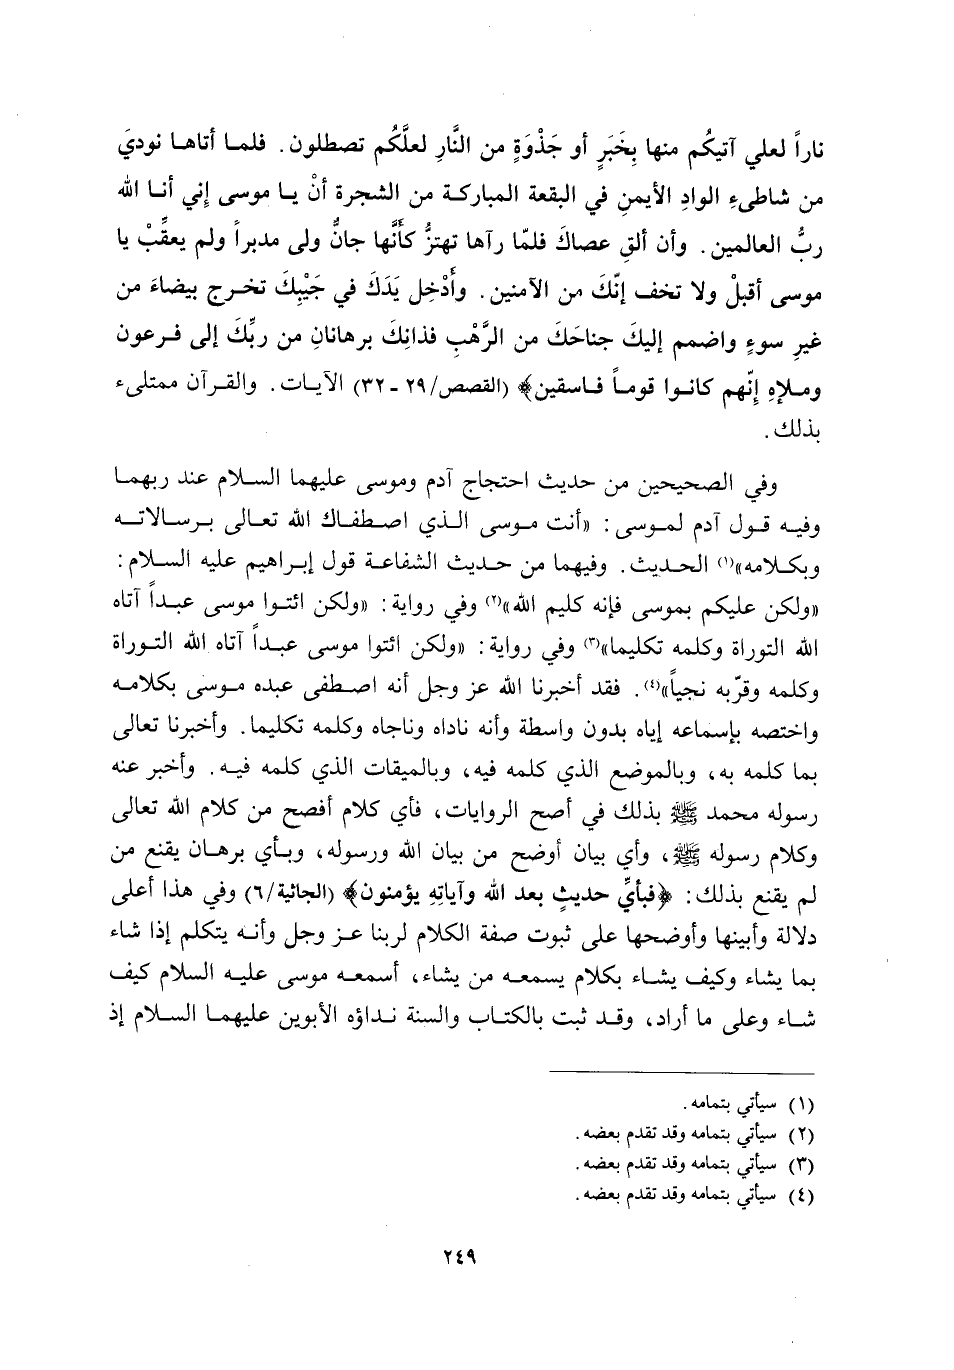 ناراً لعلي آتيكُم منها بِخَبَرٍ أو جَذْوَةٍ من النَّارِ لعلَّكُم تصطلون. فلمـا أتاهـا نوديَ
من شاطىءِ الوادِ الأيمنِ في البقعة المباركـة من الشجرة أنْ يـا موسى إني أنـا الله
ربُّ العالمين. وأن ألقِ عصاكَ فلمّا رآها تهتزُّ كأَنَّها جانٌّ ولى مدبراً ولم يعقِّبْ يا
موسى أقبلْ ولا تخف إنّكَ من الآمنين. وأَدْخِل يَدَكَ في جَيْبِكَ تخـرج بيضاءَ من
غيرِ سوءٍ واضمم إليكَ جناحَكَ من الرَّهْبِ فذانِكَ برهانانِ من ربِّكَ إلى فـرعون
ومـلاهِ إنَّهم كانـوا قومـاً فـاسقين﴾ (القصص/٢٩ - ٣٢) الآيـات. والقـرآن ممتلىء
بذلك.
وفي الصحيحين من حديث احتجاج آدم وموسى عليهما السـلام عند ربهمـا
وفيـه قـول آدم لمـوسى: «أنت مـوسى الـذي اصـطفـاك الله تعـالى بـرسـالاتـه
وبكـلامه»(١) الحـديث. وفيهما من حـديث الشفاعـة قول إبـراهيم عليه السـلام:
«ولكن عليكم بموسى فإنه كليم الله»(٢) وفي رواية: «ولكن ائتـوا موسى عبـداً آتاه
الله التوراة وكلمه تكليما»(٣) وفي رواية: «ولكن ائتوا موسى عبـداً آتاه الله التـوراة
وكلمه وقرّبه نجياً»(٤). فقد أخبرنا الله عز وجل أنه اصـطفى عبده مـوسى بكلامـه
واختصه بإسماعه إياه بدون واسطة وأنه ناداه وناجاه وكلمه تكليما. وأخبرنا تعالى
بما كلمه به، وبالموضع الذي كلمه فيه، وبالميقات الذي كلمه فيـه. وأخبر عنه
رسوله محمد ﷺ بذلك في أصح الروايات، فأي كلام أفصح من كلام الله تعالى
وكلام رسوله ﷺ، وأي بيان أوضح من بيان الله ورسوله، وبـأي برهـان يقنع من
لم يقنع بذلك: ﴿فبأيِّ حديثٍ بعد الله وآياتِهِ يؤمنون﴾ (الجاثية/٦) وفي هذا أعلى
دلالة وأبينها وأوضحها على ثبوت صفة الكلام لربنا عـز وجل وأنـه يتكلم إذا شاء
بما يشاء وكيف يشـاء بكلام يسمعـه من يشاء، أسمعـه موسى عليـه السلام كيف
شـاء وعلى ما أراد، وقـد ثبت بالكتاب والسنة نـداؤه الأبوين عليهمـا السـلام إذ
(١) سيأتي بتمامه.
(٢) سيأتي بتمامه وقد تقدم بعضه.
(٣) سيأتي بتمامه وقد تقدم بعضه.
(٤) سيأتي بتمامه وقد تقدم بعضه.
٢٤٩